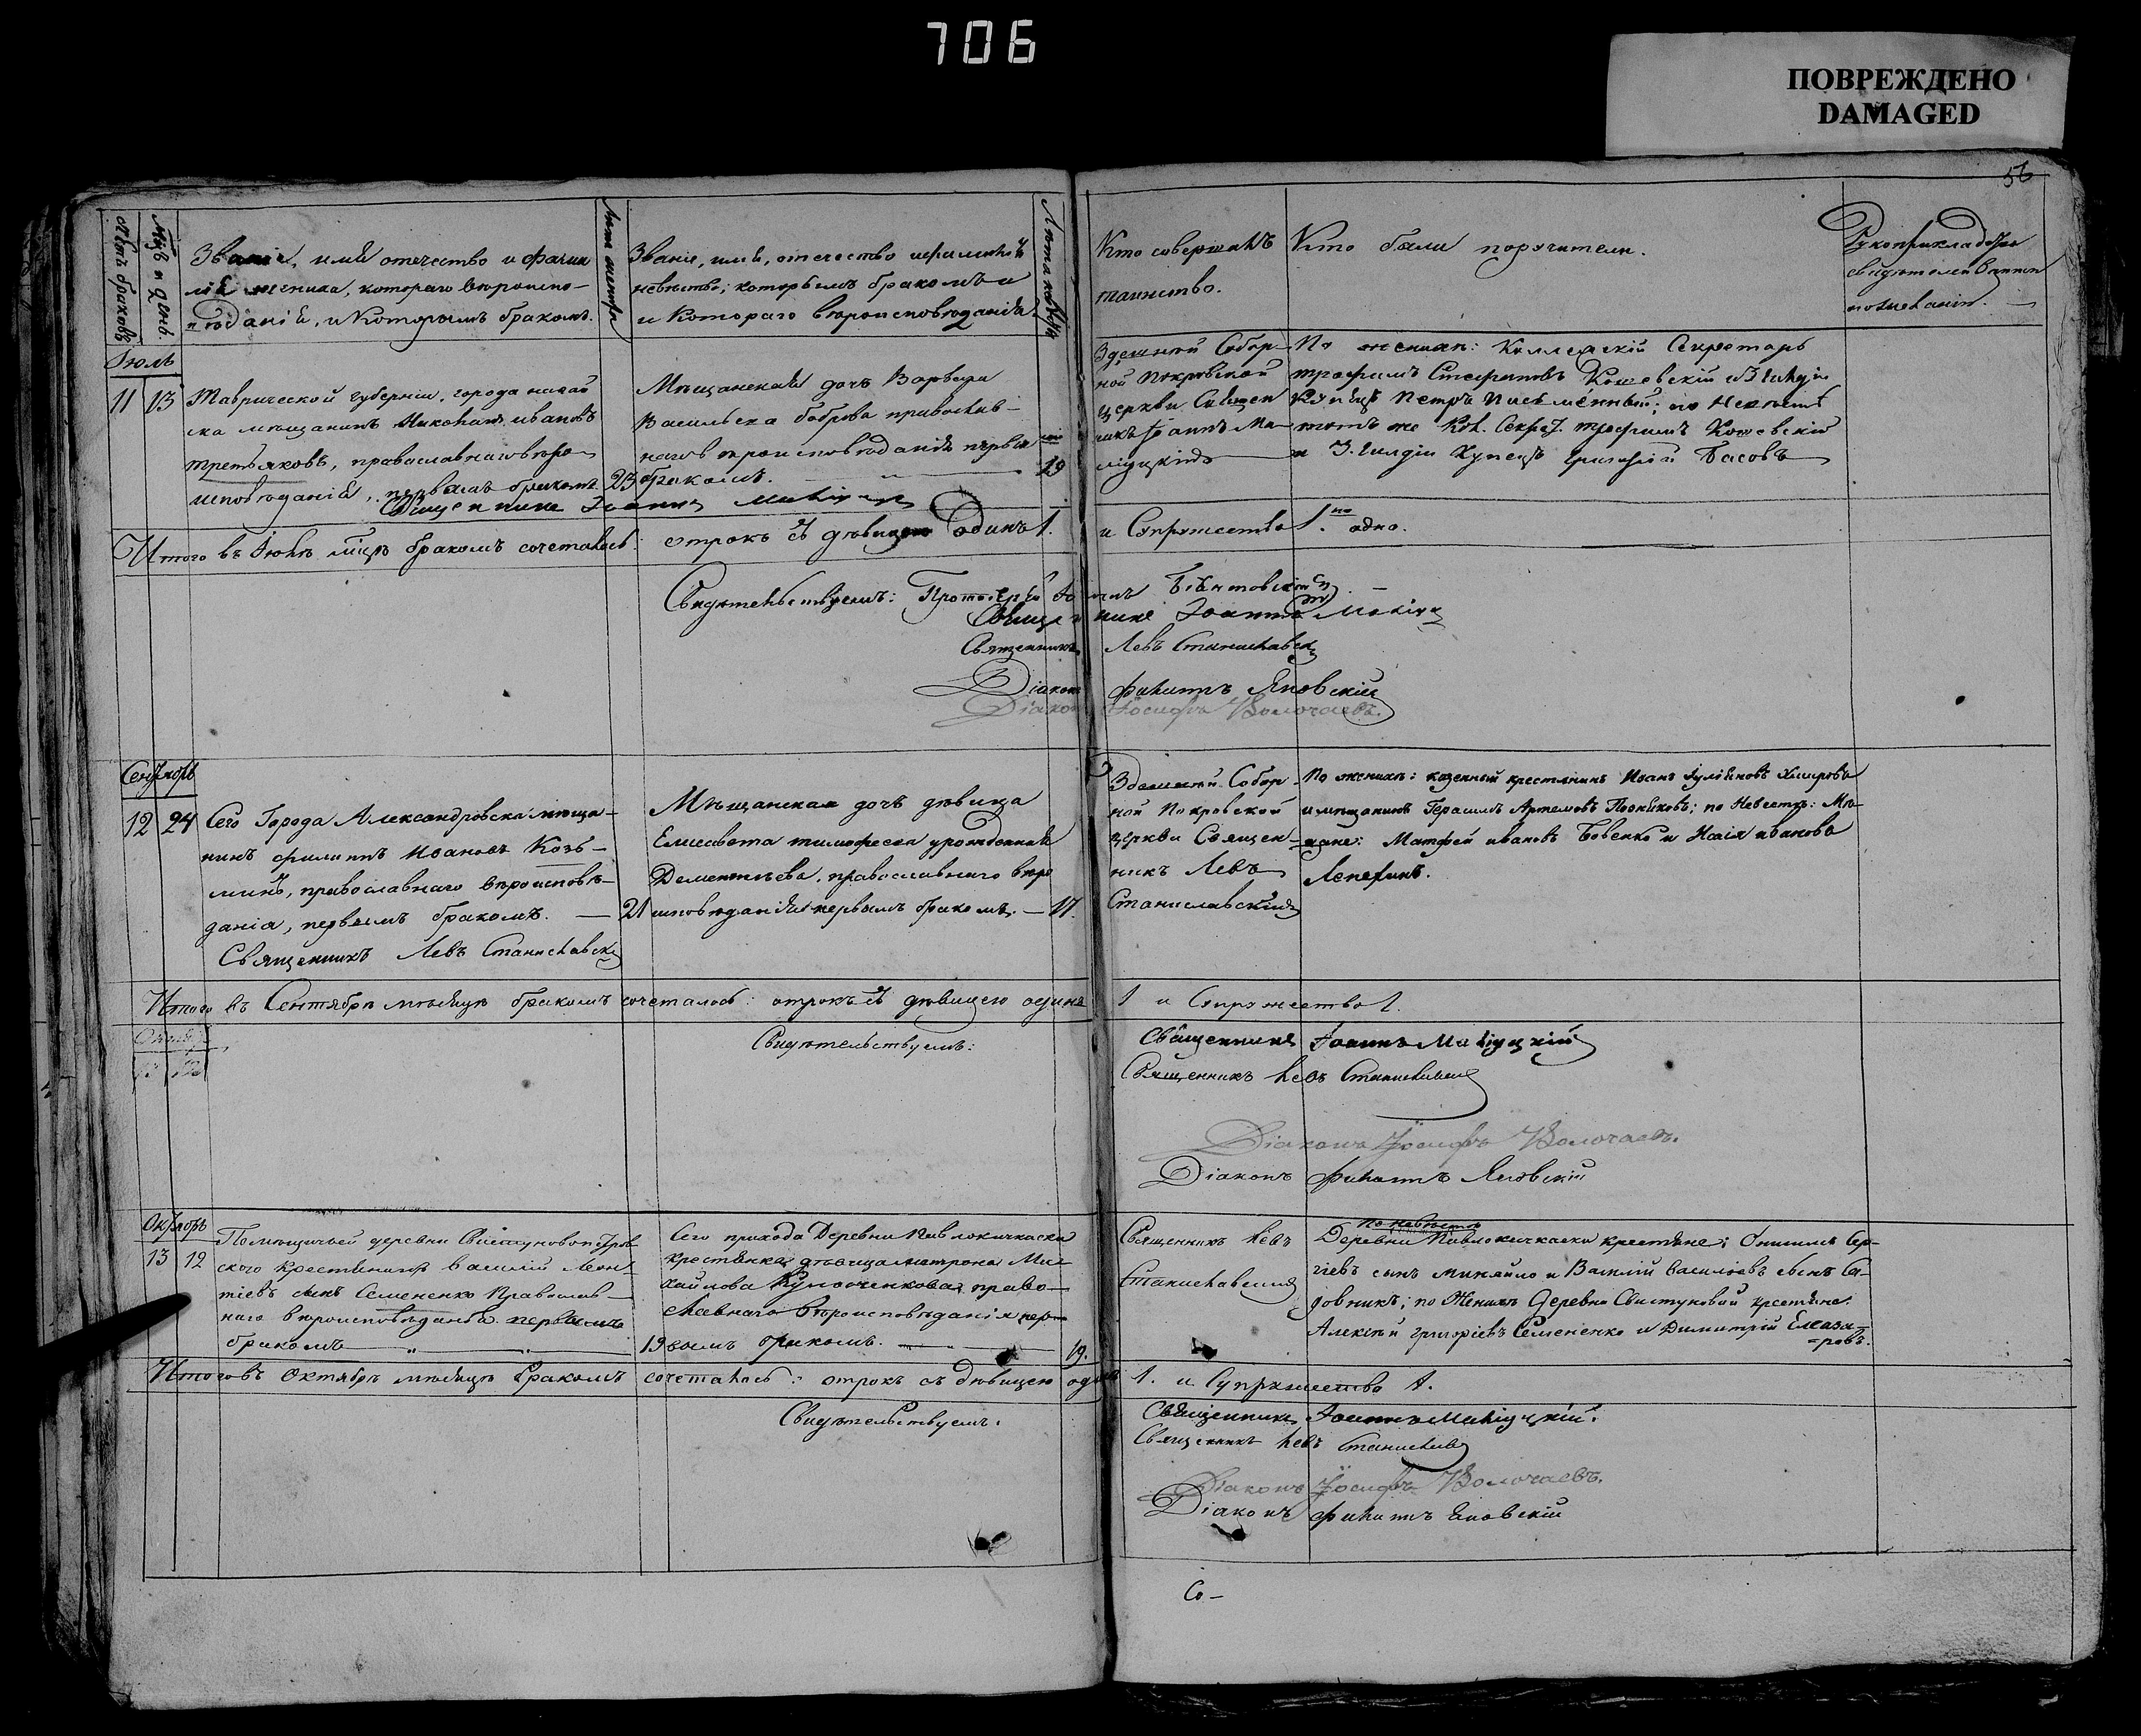 706
ПОВРЕЖДЕНО
DAMAGED
56
Счетъ браковъ
Мѣсяцъ и день.
Званіе, имя отечество и фами
лія жениха, котораго вѣроиспо-
вѣданія, и которымъ бракомъ.
Лѣта жениха
Званіе, имя, отечество и фамилія
невѣсты, которымъ бракомъ и
и котораго вѣроисповѣданія
Лѣта невѣсты
Кто совершалъ
таинство.
Кто были поручители.
Рукоприкладство
свидѣтелей
по желанію.
Іюль
11 13
Таврической губерніи, города Ногай
ска мѣщанинъ Николай Ивановъ
Третьяковъ, православнаго вѣро
исповѣданія, первымъ бракомъ. 23
Священникъ Іоаннъ
Мѣщанская дочь Варвара
Васильева Боброва православ-
наго вѣроисповѣданія первы
бракомъ. 19
Здешной Собор-
ной Покровской
церкви Священ
никъ Іоаннъ Ма-
По женихѣ: Коллежскій Секретарь
Трофимъ Стефановъ Кошевскій и 3 гильдіи
Купецъ Петръ Письменный; по Невѣстѣ
тотъ же Кол. Секрет. Трофимъ Кошевскій
и 3. гилдіи Купецъ Григорій Басовъ
Итого въ Іюлѣ мѣсяцѣ бракомъ сочеталось: отрокъ съ дѣвицею Одинъ 1. и Супружество 1. одно.
Свидѣтельствуемъ: Протоіерей
Священникъ Іоаннъ
Священникъ Левъ Станиславскій
Діаконъ Филиппъ Яновскій
Діаконъ Іосифъ Волочаевъ.
Сентябрь
12 24
Сего Города Александровска мѣща-
нинъ Филиппъ Ивановъ Козь-
минъ, православнаго вѣроисповѣ-
данія, первымъ бракомъ. — 21
Священникъ Левъ Станиславскій
Мѣщанская дочь дѣвица
Елисавета Тимофеева урожденная
Дементьева, православнаго вѣро
исповѣданія первымъ бракомъ. — 17.
Здешной Собор-
ной Покровской
церкви Священ-
никъ Левъ
Станиславскій
По женихѣ: казенный крестьянинъ Иванъ
и мѣщанинъ Герасимъ Артемовъ; по Невестѣ: Мѣ-
щане: Матфей Ивановъ Бовенко и Исаія Иванова
Лепехинъ.
Итого въ Сентябрѣ мѣсяцѣ бракомъ сочеталось: отрокъ съ дѣвицею одинъ 1 и Супружество 1.
Свидѣтельствуемъ:
Священникъ Іоаннъ
Священникъ Левъ Станиславскій
Діаконъ Іосифъ Волочаевъ.
Діаконъ Филиппъ Яновскій
Октябрь
13 12
Помѣщичьей деревни
ского крестьянинъ Василій Леон-
тіевъ сынъ Семененко Православ-
наго вѣроисповѣданія первымъ
бракомъ — 19
Сего прихода Деревни Павлокичкаски
крестьянка дѣвица Матрона Ми-
хайлова право-
славнаго вѣроисповѣданія пер-
вымъ бракомъ. — 19.
Священникъ Левъ
Станиславскій
по невѣстѣ
Деревни Павлокичкаски крестяне: Онисимъ Сер-
гіевъ сынъ Михайло и Василій Васильевъ сынъ Са-
довникъ; по Женихѣ Деревни Свистуновой крестяне:
Алексѣй Григоріевъ Семененко и Димитрій Елеаза-
=ровъ.
Итого въ Октябрѣ мѣсяцѣ бракомъ сочеталось: отрокъ съ дѣвицею одинъ 1. и Супружество 1.
Свидѣтельствуемъ:
Священникъ Іоаннъ
Священникъ Левъ
Діаконъ Іосифъ Волочаевъ.
Діаконъ Филиппъ Яновскій
Со-